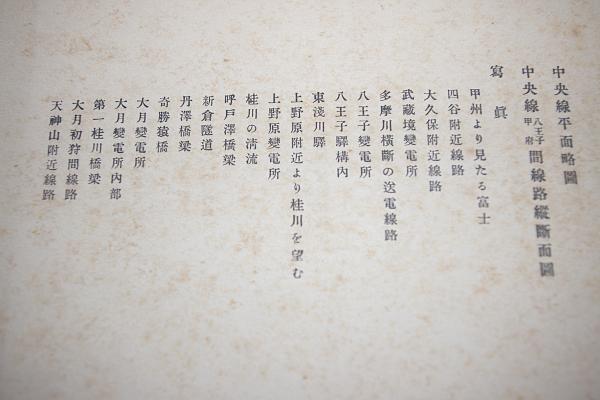 中央線平面略圖
中央線八王子甲府間線路縱斷面圖
寫眞
甲州より見たる富士
四谷附近線路
大久保附近線路
武藏境變電所
多摩川橫斷の送電線路
八王子變電所
八王子驛構內
東淺川驛
上野原附近より桂川を望む
上野原變電所
桂川の淸流
呼戸澤橋梁
新倉隧道
丹澤橋梁
奇勝猿橋
大月變電所
大月變電所內部
第一桂川橋梁
大月初狩間線路
天神山附近線路